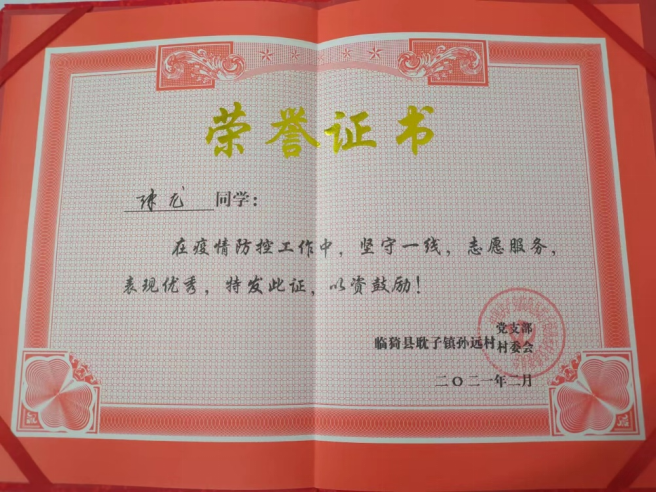 荣誉证书
同学：
在疫情防控工作中，坚守一线，志愿服务，
表现优秀，特发此证，以资鼓励！
临猗县耽子镇孙远村 党支部
村委会
二〇二一年二月